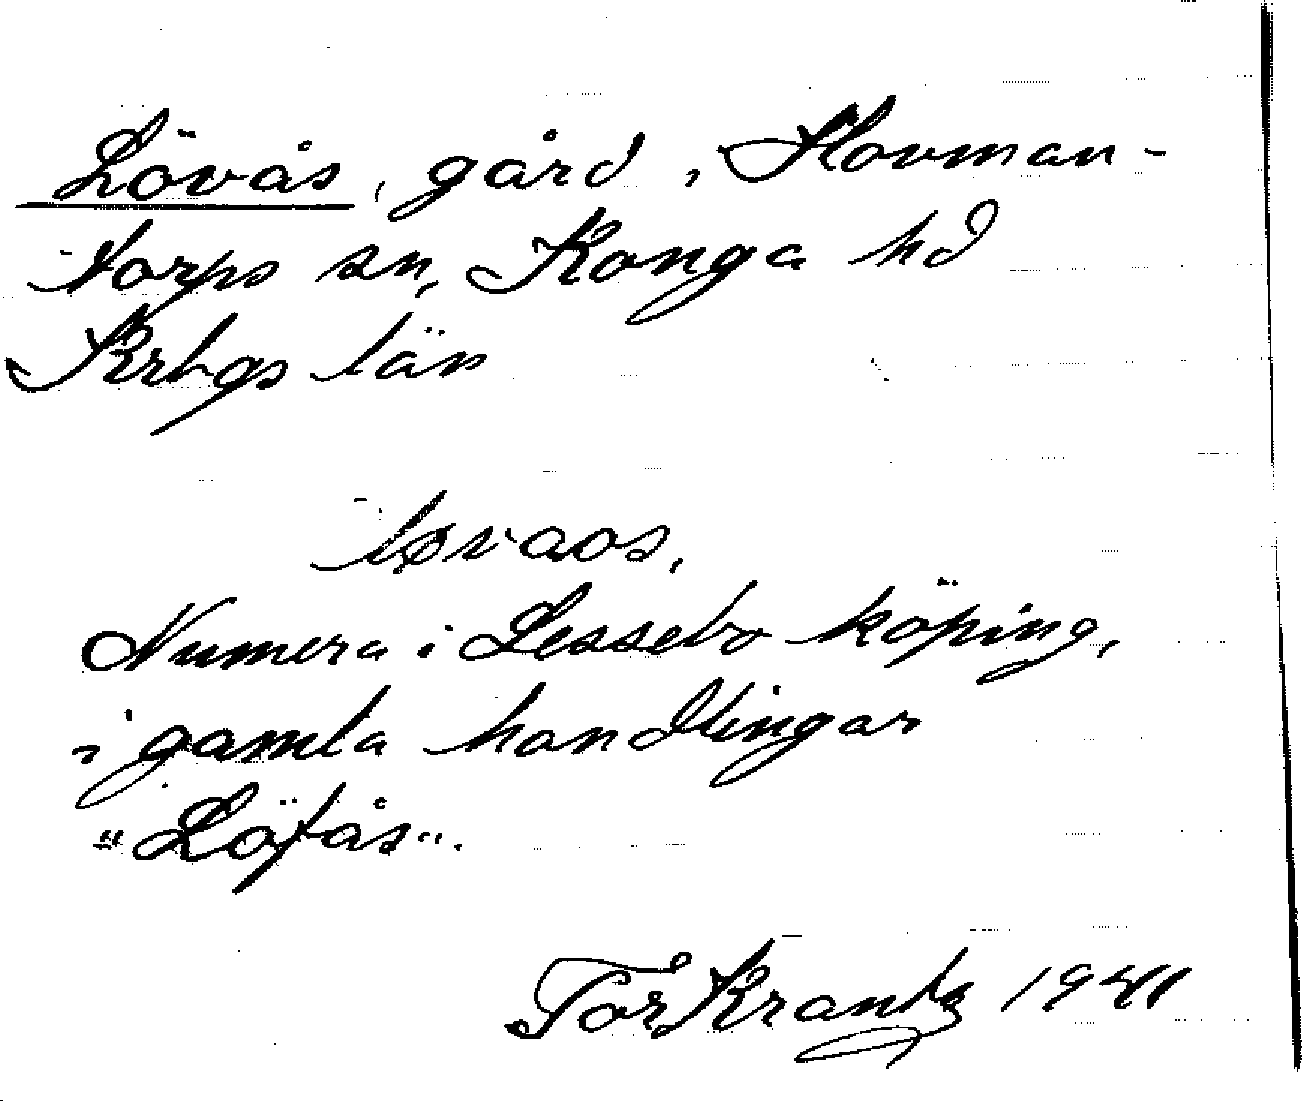 Lövås, gård, Hovman-
torps sn, Konga hd
Krbgs län
løvaos,
Numera i Lessebo köping,
i gamla handlingar
"Löfås".
Tor Krantz 1941